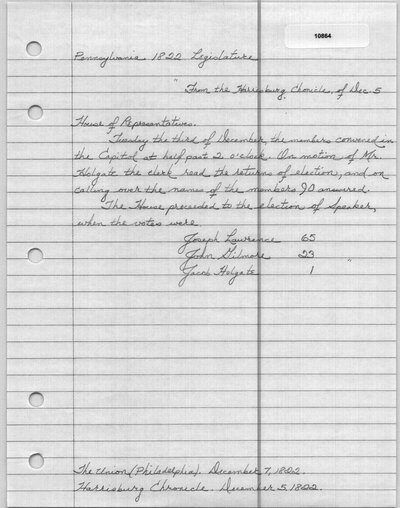 10864
Pennsylvania 1822 Legislature
"From the Harrisburg Chronicle, of Dec. 5
House of Representatives.
Tuesday, the third of December, the members convened in
the Capitol at half past 2 o'clock. On motion of Mr.
Holgate the clerk read the returns of election, and on
calling over the names of the members 90 answered.
The House proceeded to the election of Speaker,
when the votes were
Joseph Lawrence 65
John Gilmore 23
Jacob Holgate 1 "
The Union (Philadelphia). December 7, 1822.
Harrisburg Chronicle. December 5, 1822.